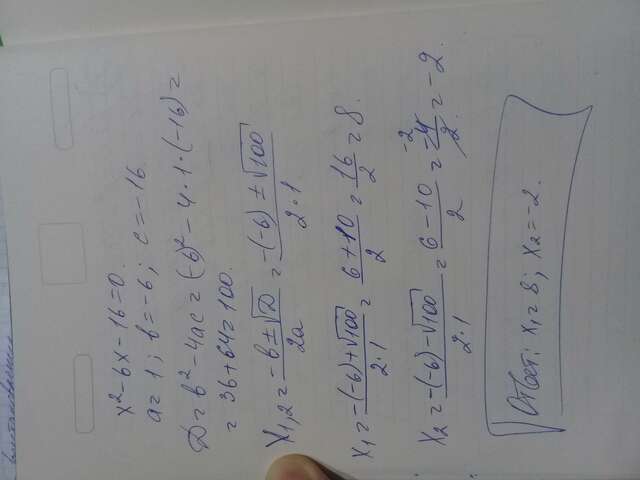 x² - 6x - 16 = 0.
a = 1; b = -6; c = -16
D = b² - 4ac = (-6)² - 4·1·(-16) =
= 36 + 64 = 100.
X₁,₂ = (-b ± √D)/2a = (-(-6) ± √100)/2·1
X₁ = (-(-6) + √100)/2·1 = (6 + 10)/2 = 16/2 = 8.
X₂ = (-(-6) - √100)/2·1 = (6 - 10)/2 = -4/2 -2 = -2.
Ответ: X₁ = 8; X₂ = -2.